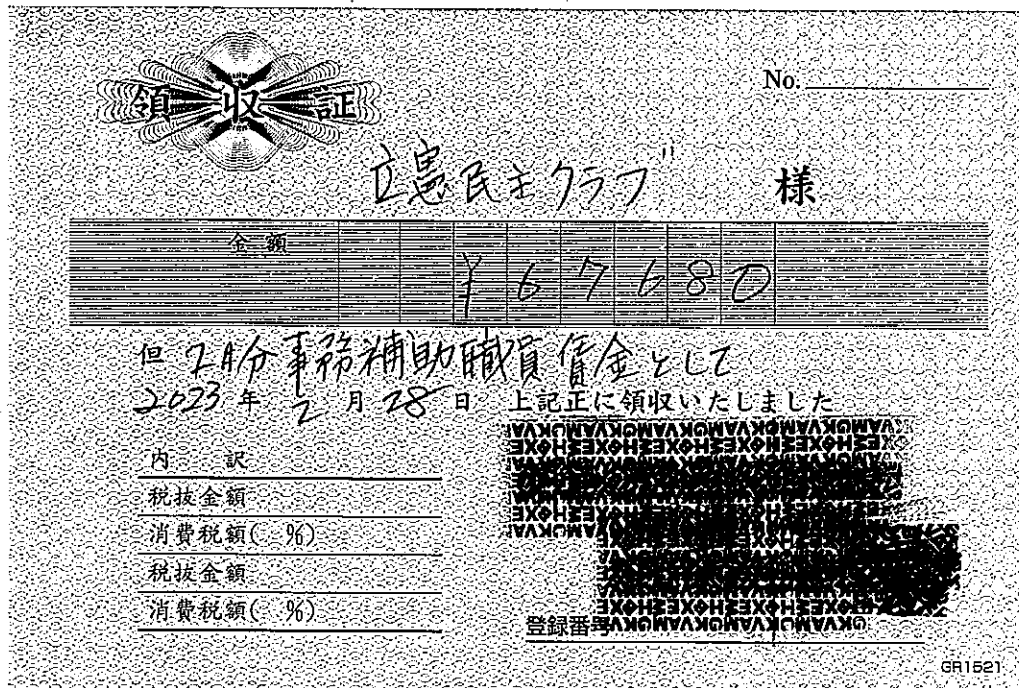 領収証
No.
立憲民主クラブ 様
金額
¥67680
但 2月分事務補助職員賃金として
2023年2月28日 上記正に領収いたしました
内 訳
税抜金額
消費税額( %)
税抜金額
消費税額( %)
登録番号
GR1521